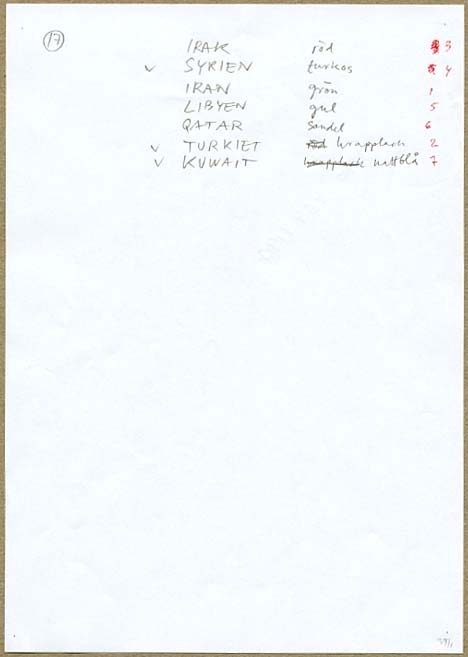 17
IRAK röd 3
✓ SYRIEN turkos 4
IRAN grön 1
LIBYEN gul 5
QATAR sandel 6
✓ TURKIET krapplack 2
✓ KUWAIT nattblå 7